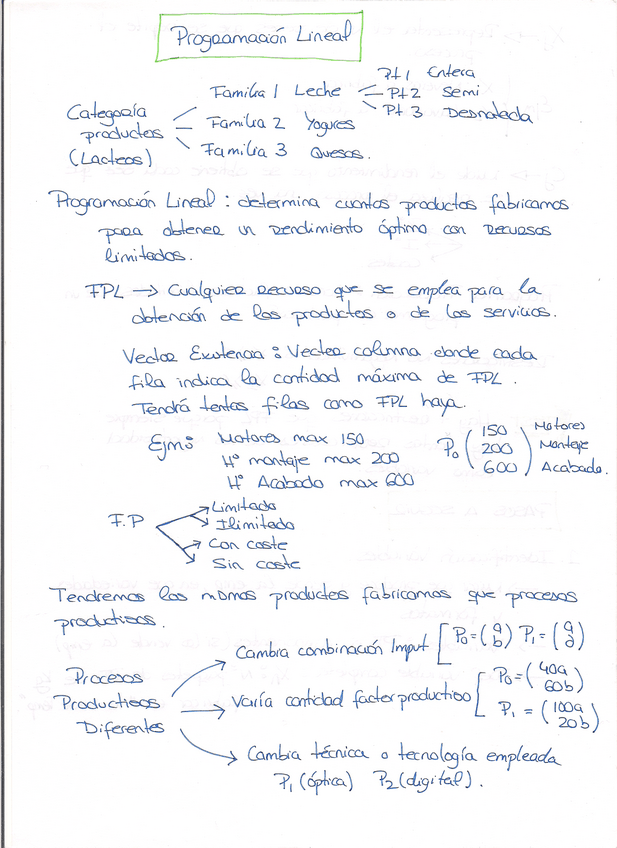 Programación Lineal
Categoría productos (Lacteos)
Familia 1 Leche
Pt 1 Entera
Pt 2 Semi
Pt 3 Desnatada
Familia 2 Yogures
Familia 3 Quesos.
Programación Lineal : determina cuantos productos fabricamos
para obtener un rendimiento óptimo con recursos
limitados.
FPL → Cualquier recurso que se emplea para la
obtención de los productos o de los servicios.
Vector Existencia : Vector columna donde cada
fila indica la cantidad máxima de FPL.
Tendrá tantas filas como FPL haya.
Ejm: Motores max 150
Hº montaje max 200
Hº Acabado max 600
P0 ( 150 Motores
200 Montaje
600 ) Acabado.
F.P
Limitado
Ilimitado
Con coste
Sin coste
Tendremos los mismos productos fabricamos que procesos
productivos.
Procesos
Productivos
Diferentes
Cambia combinación Imput [ P0 = (a b) P1 = (a d)
Varía cantidad factor productivo [ P0 = (40a 60b)
P1 = (100a 20b)
Cambia técnica o tecnología empleada
P1 (óptica) P2 (digital).